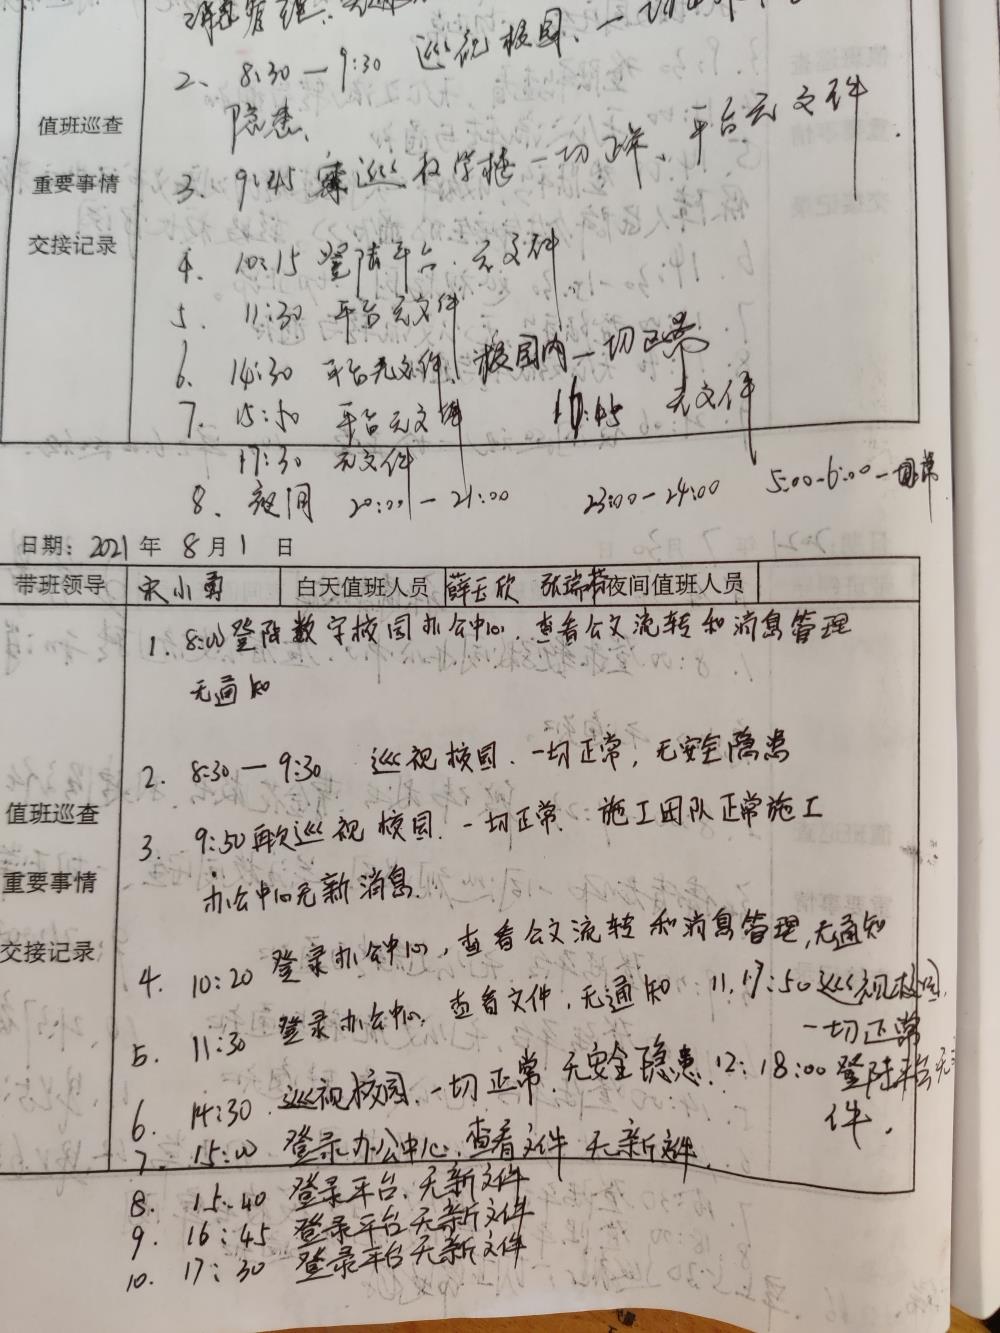 2、 8:30—9:30 巡视校园、一切正常
隐患、
值班巡查
3、 9:45 巡校学楼一切正常、平台无文件.
重要事情
交接记录
4、 10:15 登陆平台、无文件
5、 11:30 平台无文件
6、 14:30 平台无文件、校园内一切正常
7、 15:50 平台无文件 16:45 无文件
17:30 无文件
8、夜间 20:00—21:00 23:00—24:00 5:00-6:00一切正常
日期: 2021 年 8 月 1 日
带班领导 宋小勇 白天值班人员 薛云欣 张瑞 夜间值班人员
1. 8:00登陆数字校园办公中心、查看公文流转和消息管理
无通知
2. 8:30—9:30 巡视校园、一切正常,无安全隐患
值班巡查
3. 9:50再次巡视校园、一切正常、施工团队正常施工
重要事情
办公中心无新消息.
交接记录
4. 10:20 登录办公中心,查看公文流转和消息管理,无通知
5. 11:30 登录办公中心,查看文件,无通知 11.17:50巡视校园,
一切正常
6. 14:30 巡视校园、一切正常、无安全隐患. 12:18:00登陆平台无
件.
7. 15:00 登录办公中心,查看文件 无新文件.
8. 15:40 登录平台、无新文件
9. 16:45 登录平台无新文件
10. 17:30 登录平台无新文件